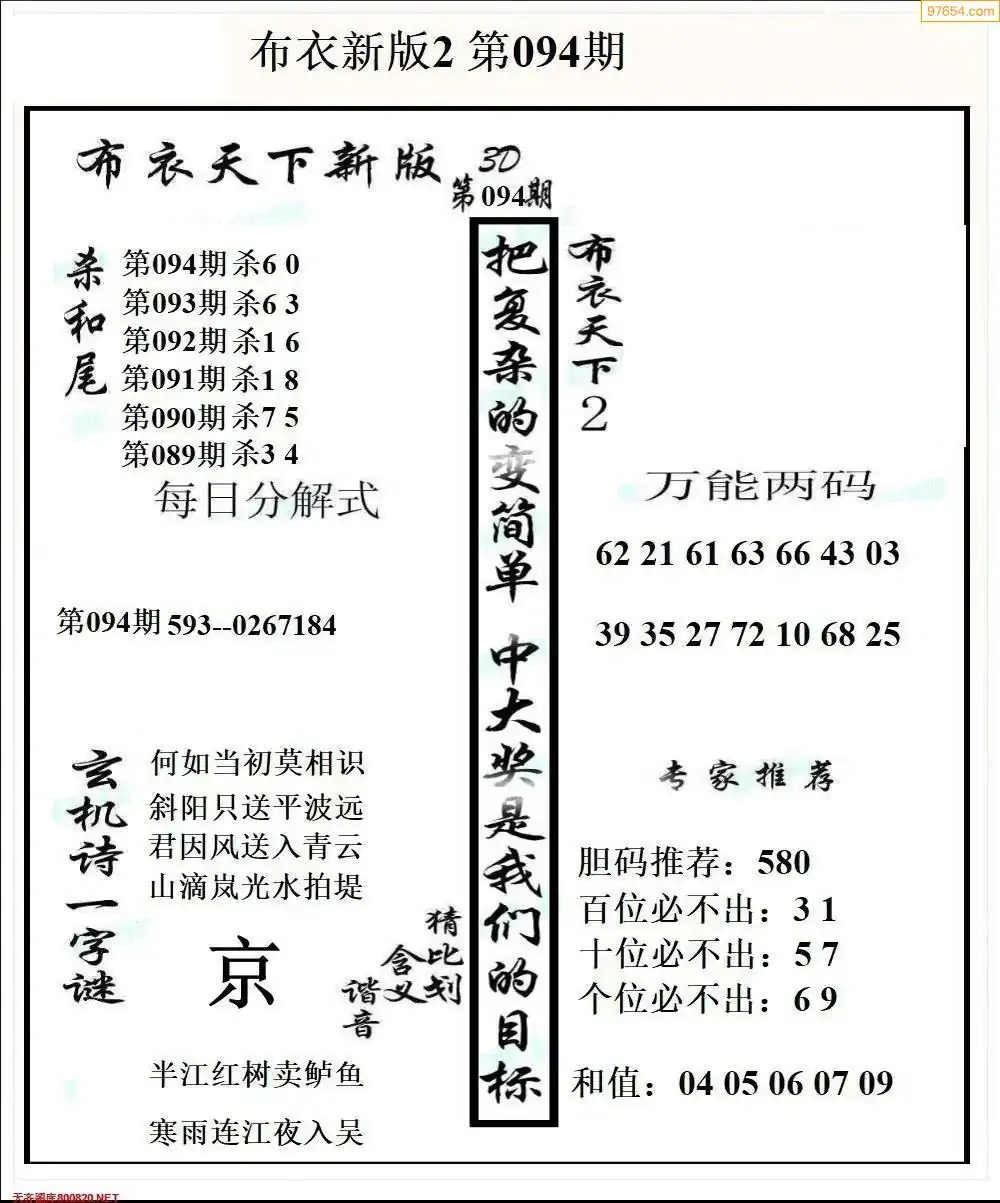 97654.com
布衣新版2 第094期
布衣天下新版
3D
第094期
杀和尾
第094期 杀6 0
第093期 杀6 3
第092期 杀1 6
第091期 杀1 8
第090期 杀7 5
第089期 杀3 4
每日分解式
第094期 593--0267184
玄机诗一字谜
何如当初莫相识
斜阳只送平波远
君因风送入青云
山滴岚光水拍堤
京
猜比划
含义
谐音
半江红树卖鲈鱼
寒雨连江夜入吴
把复杂的变简单 中大奖是我们的目标
布衣天下2
万能两码
62 21 61 63 66 43 03
39 35 27 72 10 68 25
专家推荐
胆码推荐：580
百位必不出：3 1
十位必不出：5 7
个位必不出：6 9
和值：04 05 06 07 09
天齐图库800820.NET